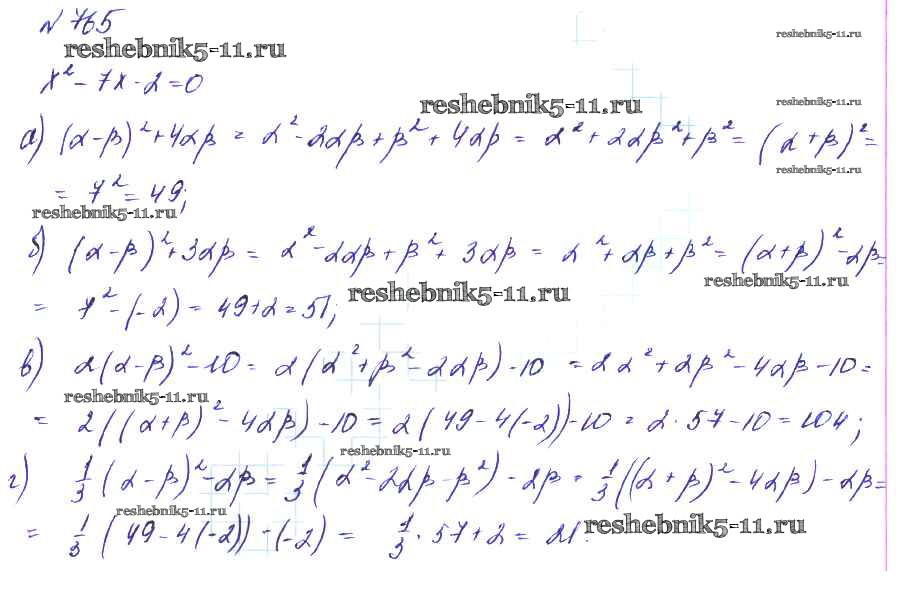 № 765
reshebnik5-11.ru
reshebnik5-11.ru
x² - 7x - 2 = 0
reshebnik5-11.ru
reshebnik5-11.ru
а) (α-β)² + 4αβ = α² - 2αβ + β² + 4αβ = α² + 2αβ² + β² = (α+β)² =
reshebnik5-11.ru
= 7² = 49;
reshebnik5-11.ru
б) (α-β)² + 3αβ = α² - 2αβ + β² + 3αβ = α² + αβ + β² = (α+β)² - αβ =
reshebnik5-11.ru
= 7² - (-2) = 49 + 2 = 51;
reshebnik5-11.ru
в) 2(α-β)² - 10 = 2(α² + β² - 2αβ) - 10 = 2α² + 2β² - 4αβ - 10 =
reshebnik5-11.ru
= 2((α+β)² - 4αβ) - 10 = 2(49 - 4(-2)) - 10 = 2·57 - 10 = 104;
reshebnik5-11.ru
г) 1/3 (α-β)² - αβ = 1/3 (α² - 2αβ - β²) - αβ = 1/3 ((α+β)² - 4αβ) - αβ =
reshebnik5-11.ru
= 1/3 (49 - 4(-2)) - (-2) = 1/3 · 57 + 2 = 21.
reshebnik5-11.ru